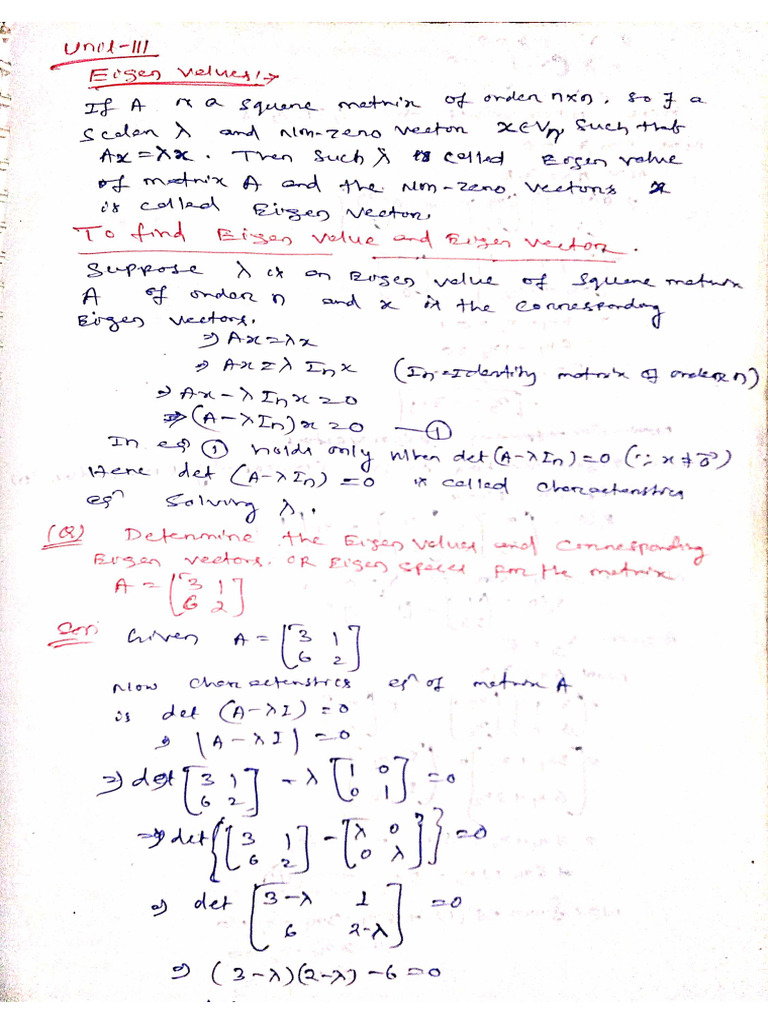 Unit-III
Eigen values:→
If A is a square matrix of order n×n, so ∃ a
scalar λ and Non-zero vector x∈Vn such that
Ax=λx. Then such λ is called Eigen value
of matrix A and the Non-zero vectors x
is called Eigen vector.
To find Eigen value and Eigen vector.
Suppose λ is an Eigen value of square matrix
A of order n and x is the corresponding
Eigen vectors.
⇒ Ax=λx
⇒ Ax=λ In x (In=Identity matrix of order n)
⇒ Ax-λ In x=0
⇒ (A-λIn)x=0 —①
In eqⁿ ① holds only when det(A-λIn)=0 (∵ x≠0⃗)
Here det (A-λIn)=0 is called characteristics
eqⁿ solving λ..
(Q) Determine the Eigen values and corresponding
Eigen vectors. OR Eigen spaces for the matrix
A = [3 1
6 2]
Solⁿ Given A = [3 1
6 2]
Now characteristics eqⁿ of matrix A
is det (A-λI)=0
⇒ |A-λI|=0
⇒ det [3 1
6 2] - λ [1 0
0 1] =0
⇒ det {[3 1
6 2] - [λ 0
0 λ]} =0
⇒ det [3-λ 1
6 2-λ] =0
⇒ (3-λ)(2-λ)-6=0